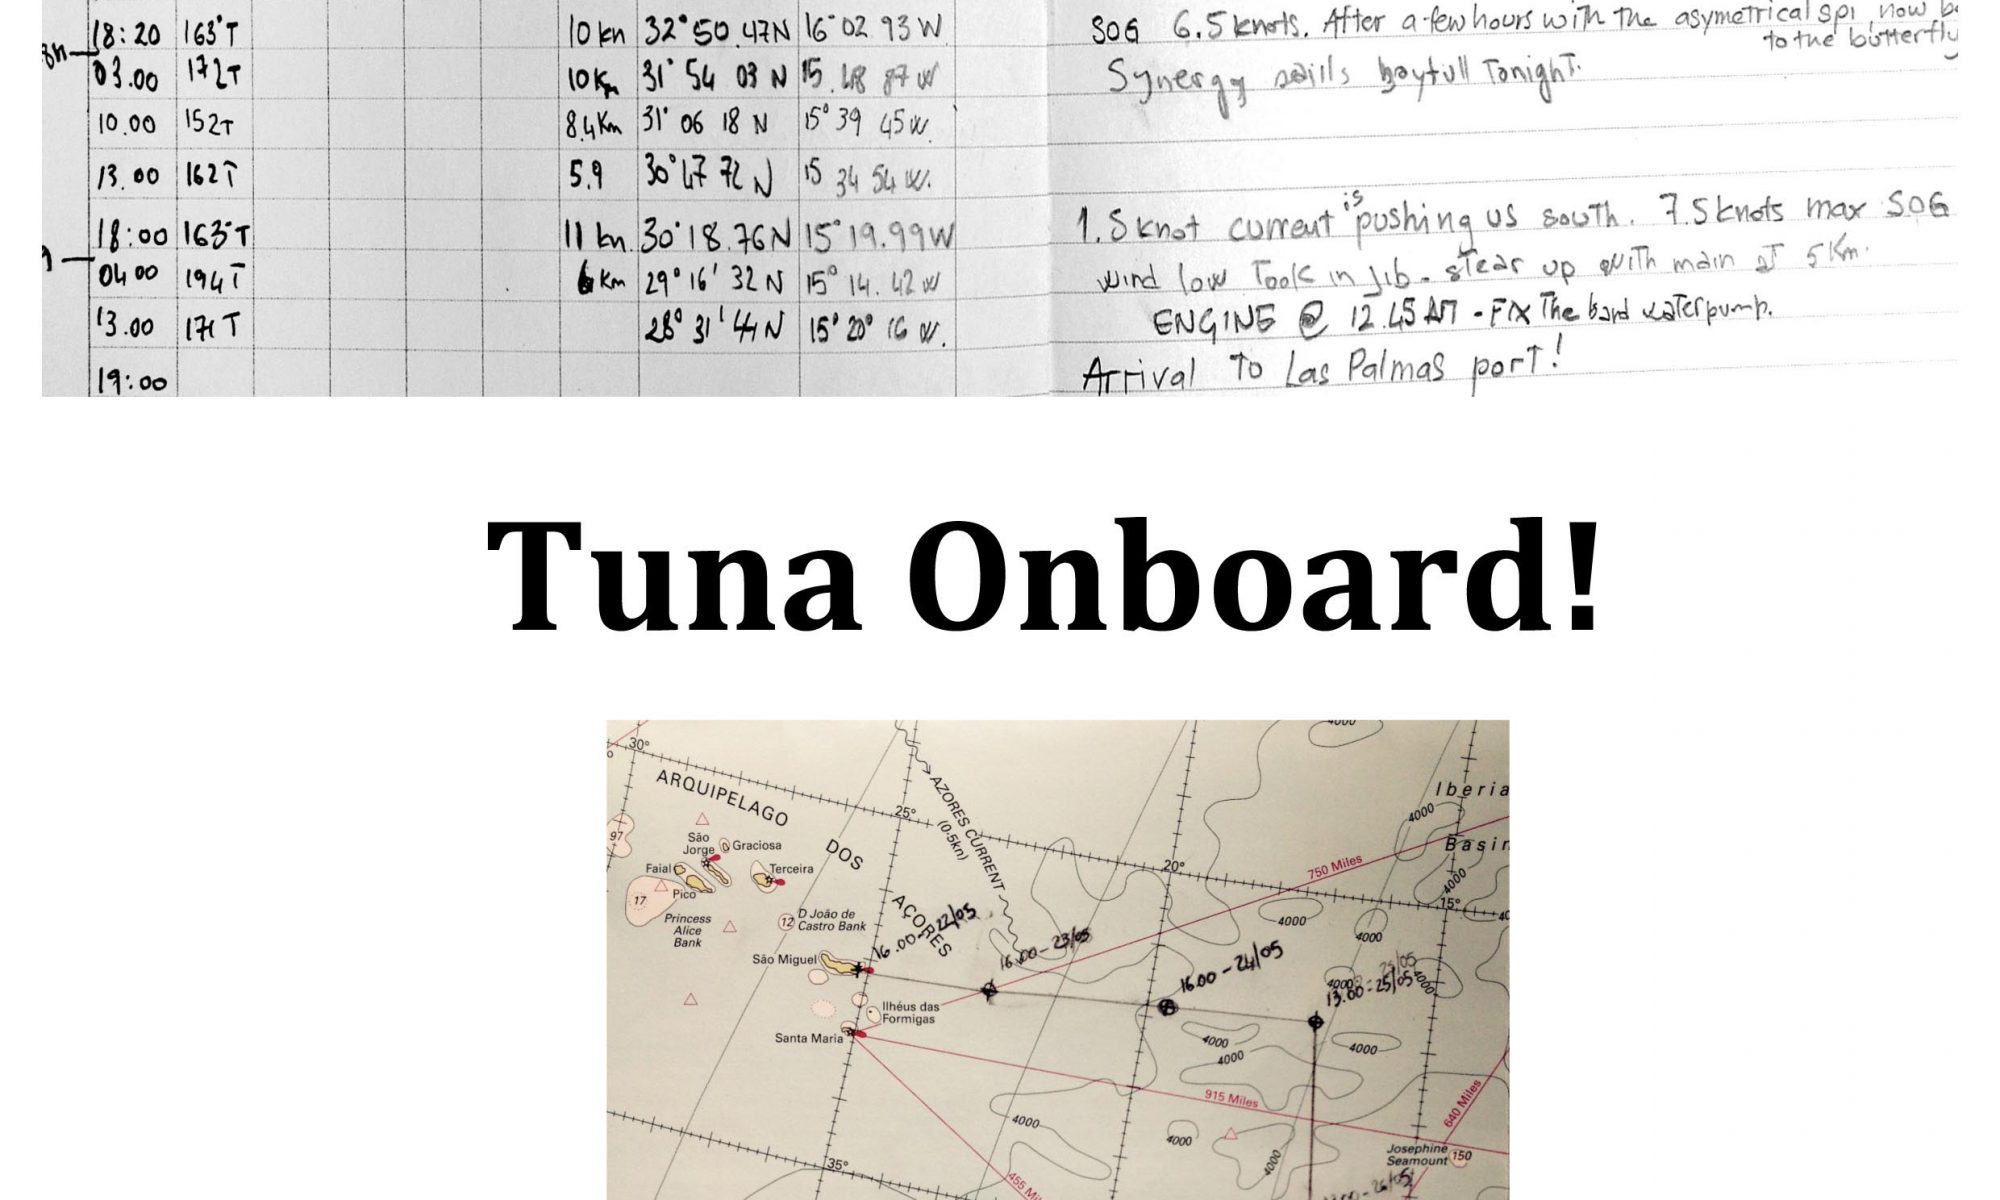 18:20 163°T 10 kn 32°50.47N 16°02 93 W SOG 6.5 knots. After a few hours with the asymetrical spi, now
to the butterfly
03.00 172T 10 Km 31° 54 03 N 15. 48 87 W Synergy tonight.
10.00 152T 8.4Km 31° 06 18 N 15° 39 45 W.
13.00 162T 5.9 30°47 72 N 15 34 54 W.
18:00 163°T 11 kn. 30°18.76N 15°19.99W 1.5 knot current is pushing us south. 7.5 knots max SOG
04 00 194T 6 Km 29° 16' 32 N 15° 14. 42 W wind low Took in jib. stear up with main at 5 Km.
13.00 171 T 28° 31' 44 N 15° 20° 16 W. ENGINE @ 12.45 AM - FIX The waterpump.
19:00 Arrival To Las Palmas port!
Tuna Onboard!
4000
30°
ARQUIPELAGO
DOS
AÇORES
25°
AZORES CURRENT
(0·5kn)
Iberia
Basin
4000
97
São
Jorge
Graciosa
Faial
Pico
Terceira
17
Princess
Alice
Bank
12
D João de
Castro Bank
20°
750 Miles
4000
15°
4000
4000
São Miguel
16.00-22/05
16.00-23/05
16.00-24/05
25/05
4000
13.00-25/05
4000
Ilhéus das
Formigas
Santa Maria
4000
4000
4000
915 Miles
640 Miles
4000
4000
4000
Josephine
Seamount
150
35°
455
26/05